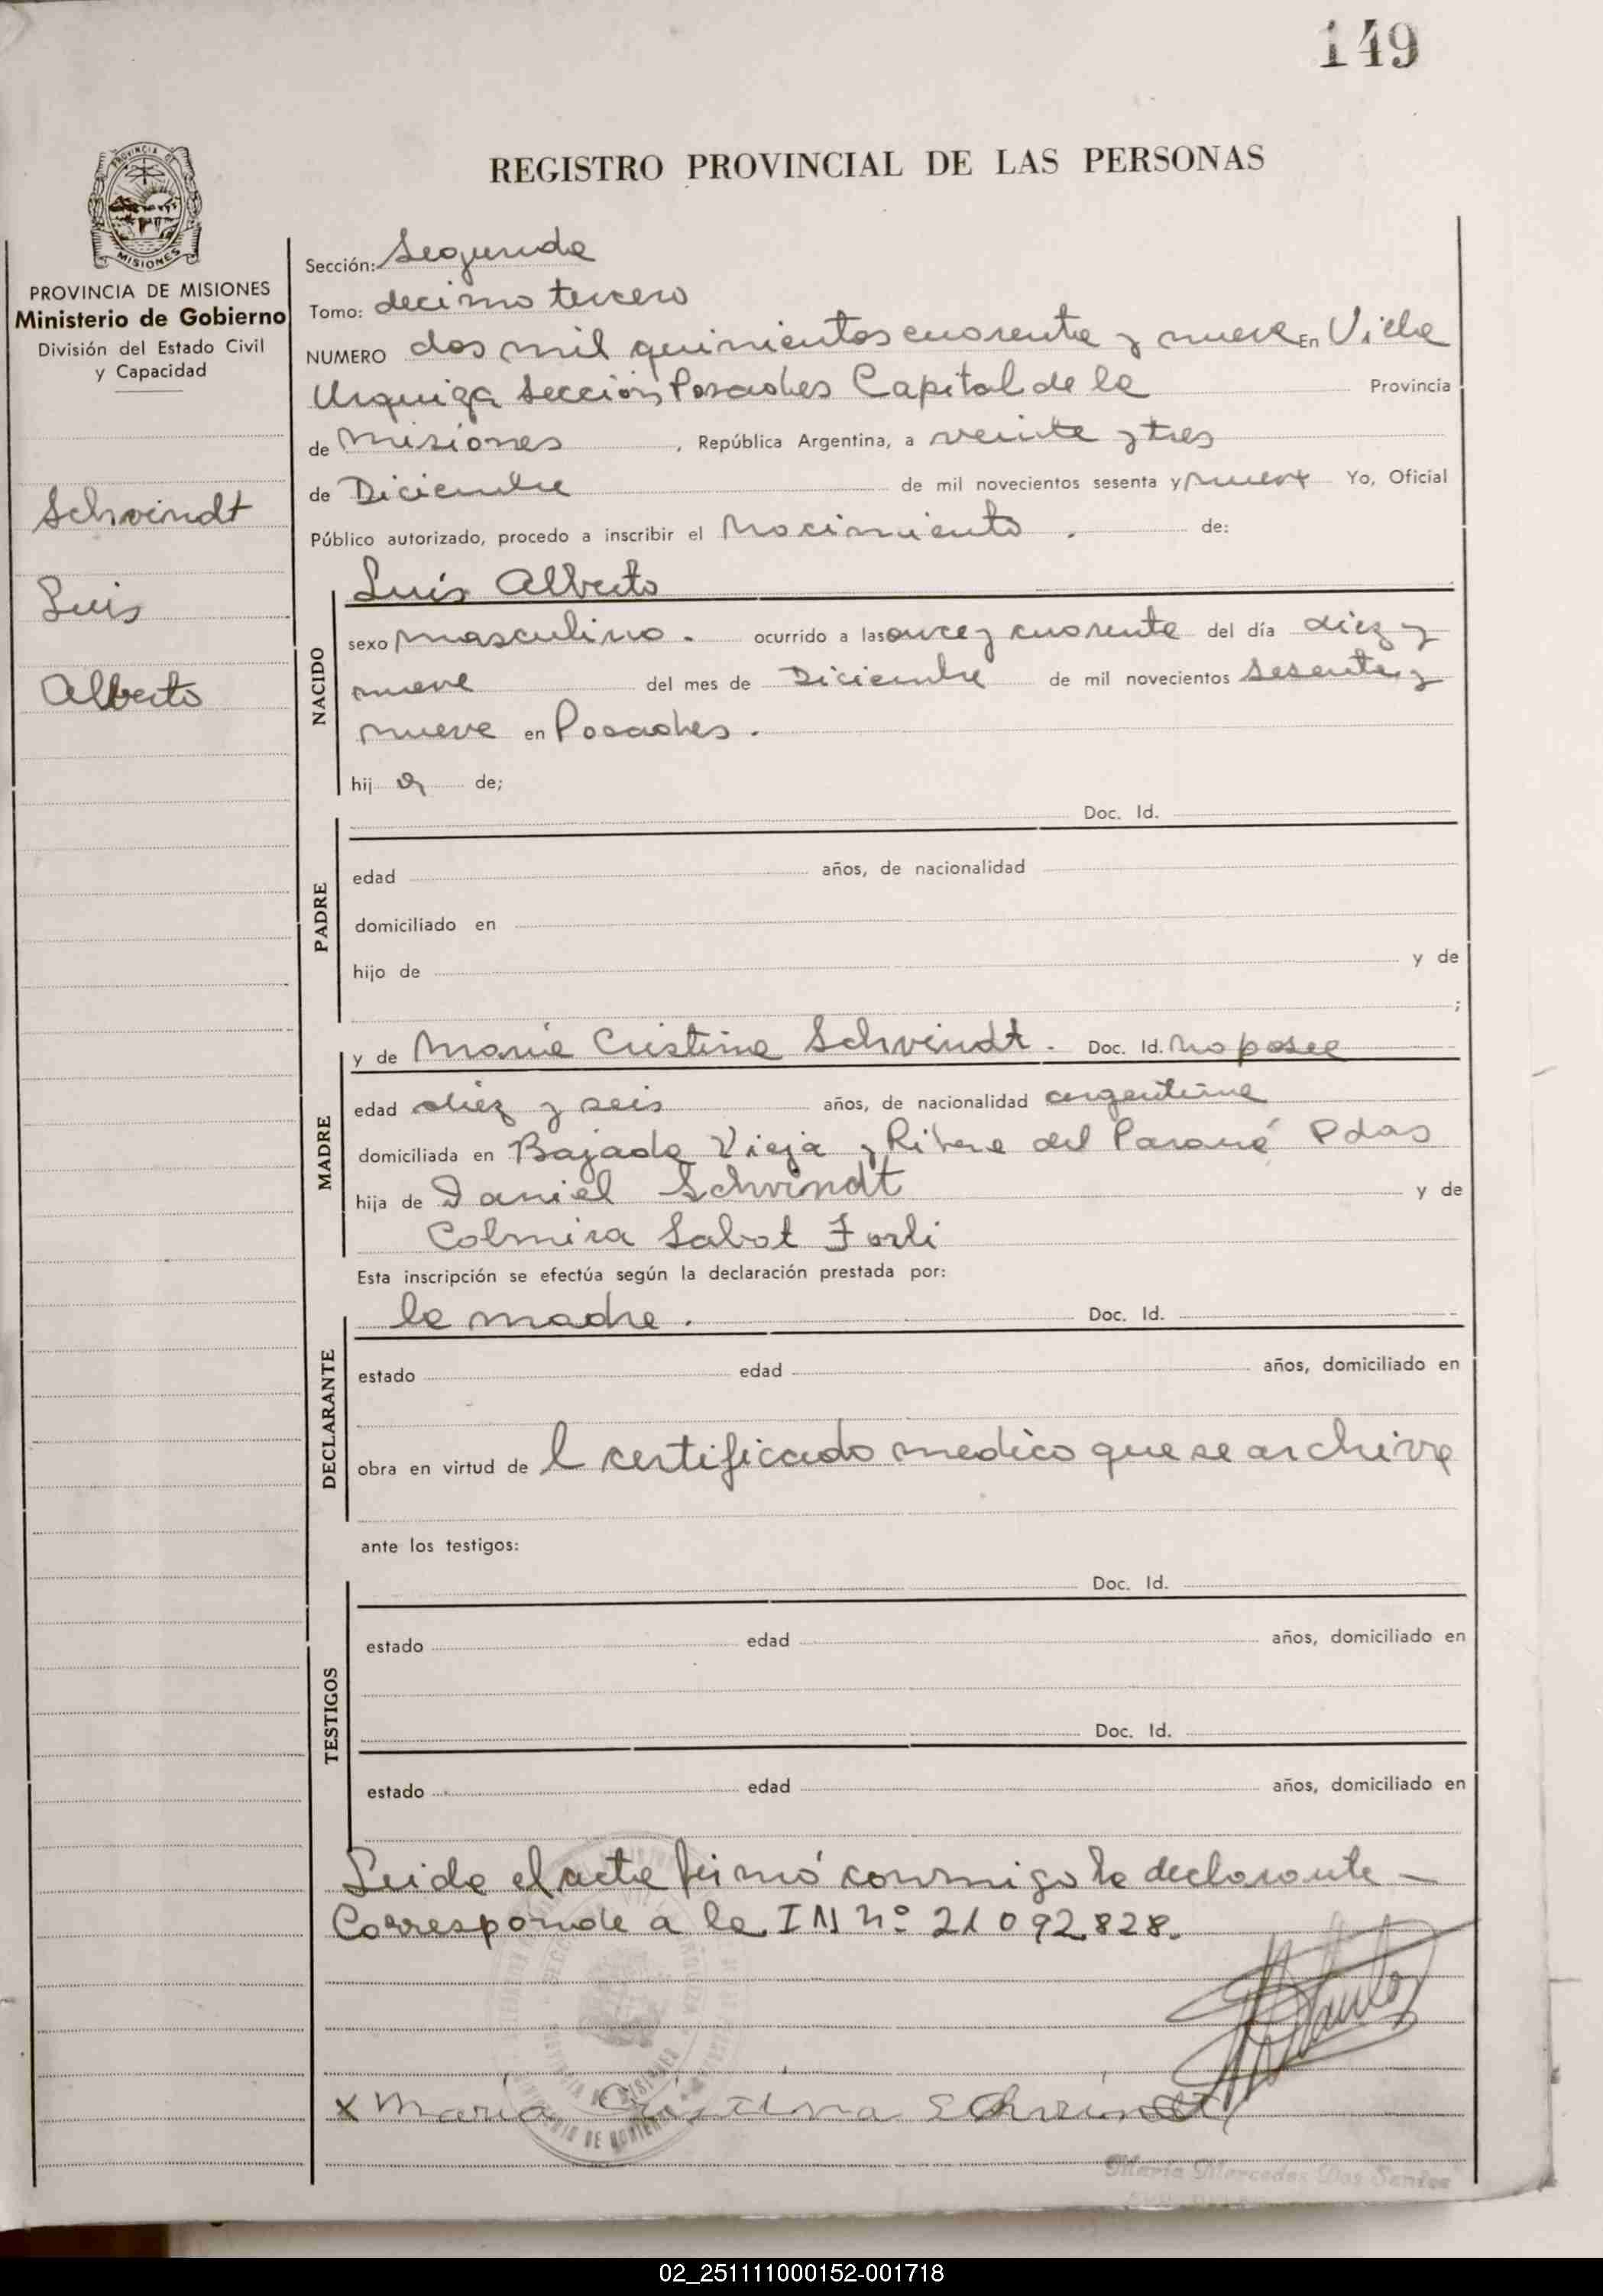 149
REGISTRO PROVINCIAL DE LAS PERSONAS
PROVINCIA DE
MISIONES
PROVINCIA DE MISIONES
Ministerio de Gobierno
División del Estado Civil
y Capacidad
Schvindt
Luis
Alberto
Sección: Segunda
Tomo: decimo tercero
NUMERO dos mil quinientos cuarenta y nueve En Villa
Urquiza Sección Posadas Capital de la Provincia
de Misiones , República Argentina, a veinte y tres
de Diciembre de mil novecientos sesenta y nueve Yo, Oficial
Público autorizado, procedo a inscribir el Nacimiento . de:
NACIDO
Luis Alberto
sexo masculino . ocurrido a las once y cuarenta del día diez y
nueve del mes de Diciembre de mil novecientos sesenta y
nueve en Posadas .
hij o de;
PADRE
Doc. Id.
edad años, de nacionalidad
domiciliado en
hijo de y de
;
MADRE
y de María Cristina Schvindt . Doc. Id. No posee
edad diez y seis años, de nacionalidad argentina
domiciliada en Bajada Vieja y Ribera del Paraná Pdas
hija de Daniel Schvindt y de
Colmira Sabot Forli
Esta inscripción se efectúa según la declaración prestada por:
DECLARANTE
la madre . Doc. Id.
estado edad años, domiciliado en
obra en virtud de l certificado medico que se archiva
ante los testigos:
TESTIGOS
Doc. Id.
estado edad años, domiciliado en
Doc. Id.
estado edad años, domiciliado en
Leida el acta firmó conmigo la declarante —
Corresponde a la IN nº 21092.828.
x María Cristina Schvindt
María Mercedes Dos Santos
02_251111000152-001718